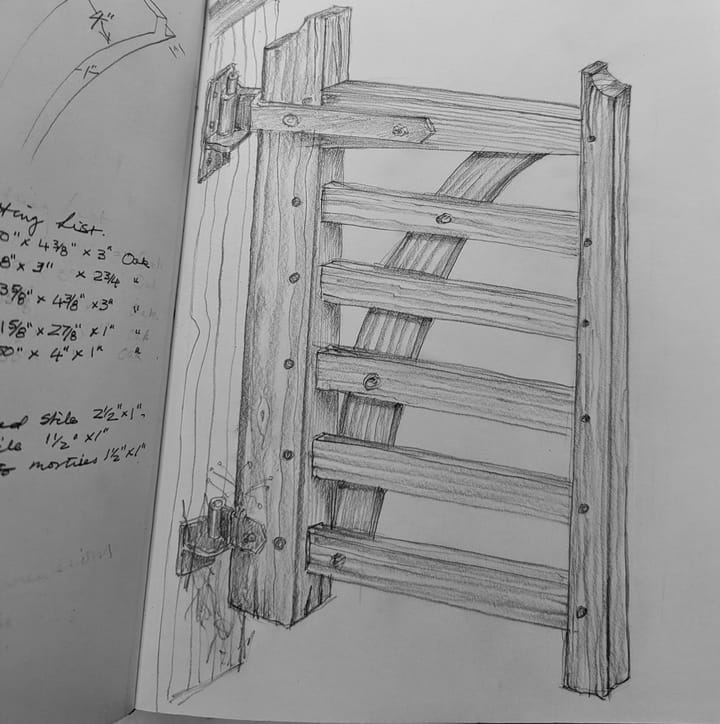 4"
1"
List.
0" x 4 3/8" x 3" Oak
8" x 3" x 2 3/4 "
3 5/8" x 4 3/8" x 3" "
1 5/8" x 2 7/8" x 1" "
0" x 4" x 1" "
stile 2 1/2" x 1"
1 1/2" x 1"
mortises 1 1/2" x 1"